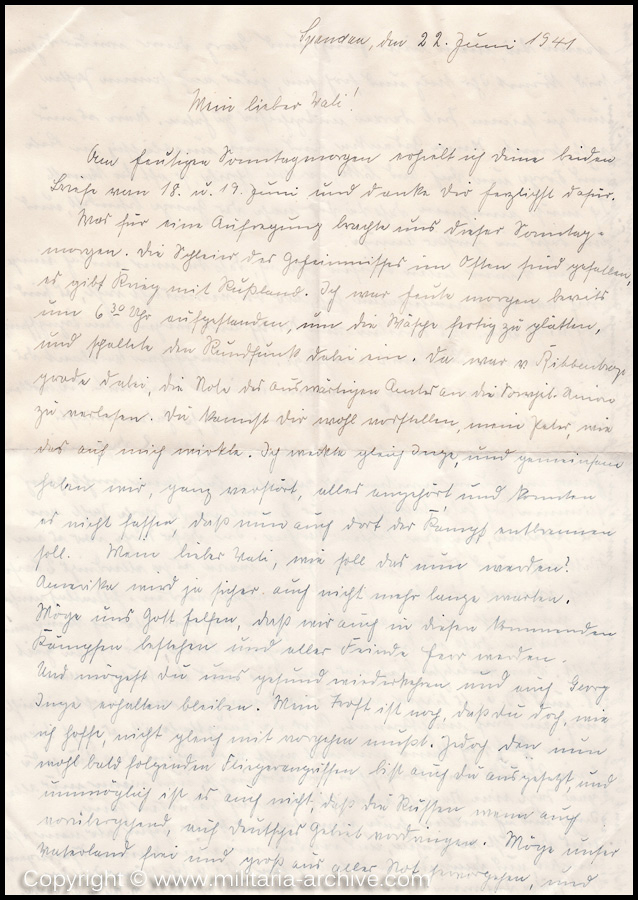 Spandau, den 22. Juni 1941
Mein lieber Vati!
Am heutigen Sonntagmorgen erhielt ich deine beiden
Briefe vom 18. u. 19. Juni und danke Dir herzlichst dafür.
Was für eine Aufregung brachte uns dieser Sonntag-
morgen. Die Schleier des Geheimnisses im Osten sind gefallen,
es gibt Krieg mit Rußland. Ich war heute morgen bereits
um 6 30 Uhr aufgestanden, um die Wäsche fertig zu glätten,
und schaltete den Rundfunk dabei ein. Da war v Ribbentrop
grade dabei, die Note des Auswärtigen Amtes an die Sowjet-Union
zu verlesen. Du kannst Dir wohl vorstellen, mein Peter, wie
das auf mich wirkte. Ich weckte gleich Inge, und gemeinsam
haben wir, ganz verstört, alles angehört, und konnten
es nicht fassen, daß nun auch dort der Kampf entbrennen
soll. Mein lieber Vati, wie soll das nun werden?
Amerika wird ja sicher auch nicht mehr lange warten.
Möge uns Gott helfen, daß wir auch in diesen kommenden
Kämpfen bestehen und aller Feinde Herr werden.
Und mögest Du uns gesund wiederkehren und auch Georg
Inge erhalten bleiben. Mein Trost ist noch, daß du doch, wie
ich hoffe, nicht gleich mit vorgehen mußt. Jedoch den nun
wohl bald folgenden Fliegerangriffen bist auch Du ausgesetzt, und
unmöglich ist es auch nicht, daß die Russen wenn auch
vorübergehend, auf deutsches Gebiet vordringen. Möge unser
Vaterland frei und groß aus aller Not hervorgehen, und
Copyright © www.militaria-archive.com